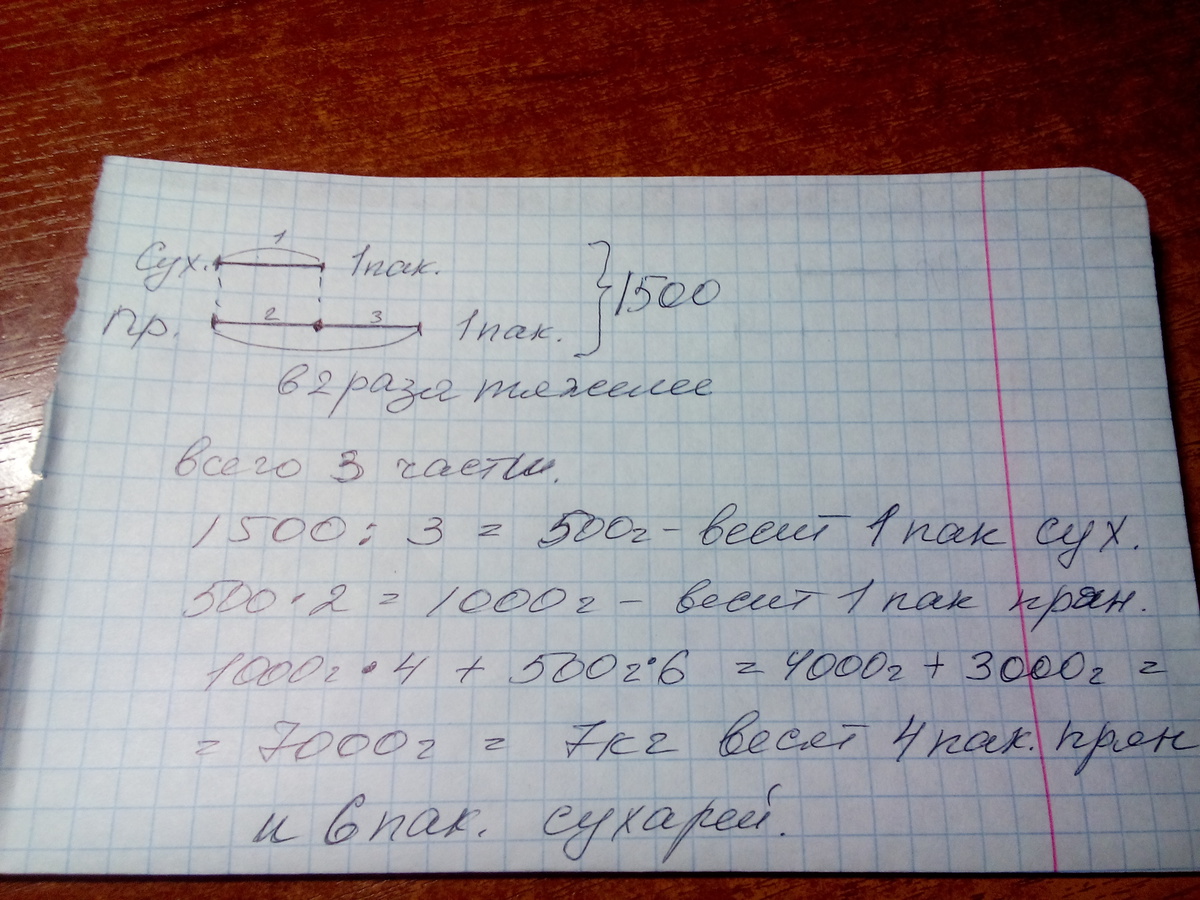 1
Сух. 1 пак.
2 3
Пр. 1 пак. } 1500
в 2 раза тяжелее
всего 3 части.
1500 : 3 = 500г - весит 1 пак сух.
500 · 2 = 1000г - весит 1 пак прян.
1000г · 4 + 500г · 6 = 4000г + 3000г =
= 7000г = 7кг весят 4 пак. прян
и 6 пак. сухарей.